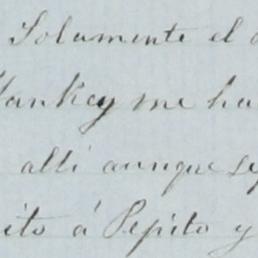 Solamente el
Yankey me ha
alli aunque se
ito á Pepito y